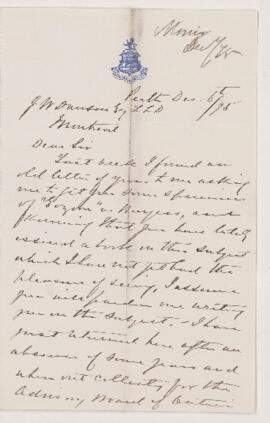 Morris
Dec 6/75
Perth Dec. 6th/75
J W Dawson Esq LLD
Montreal
Dear Sir
Last week I found an
old letter of yours to me asking
me to get you some specimens
of "Eozoon" in Burgess, and
knowing that you have lately
issued a book on this subject
which I have not yet had the
pleasure of seeing, I assume
you will pardon me writing
you on the subject. - I have
just returned here after an
absence of some years and
when out collecting for the
Advisory Board of Ontario